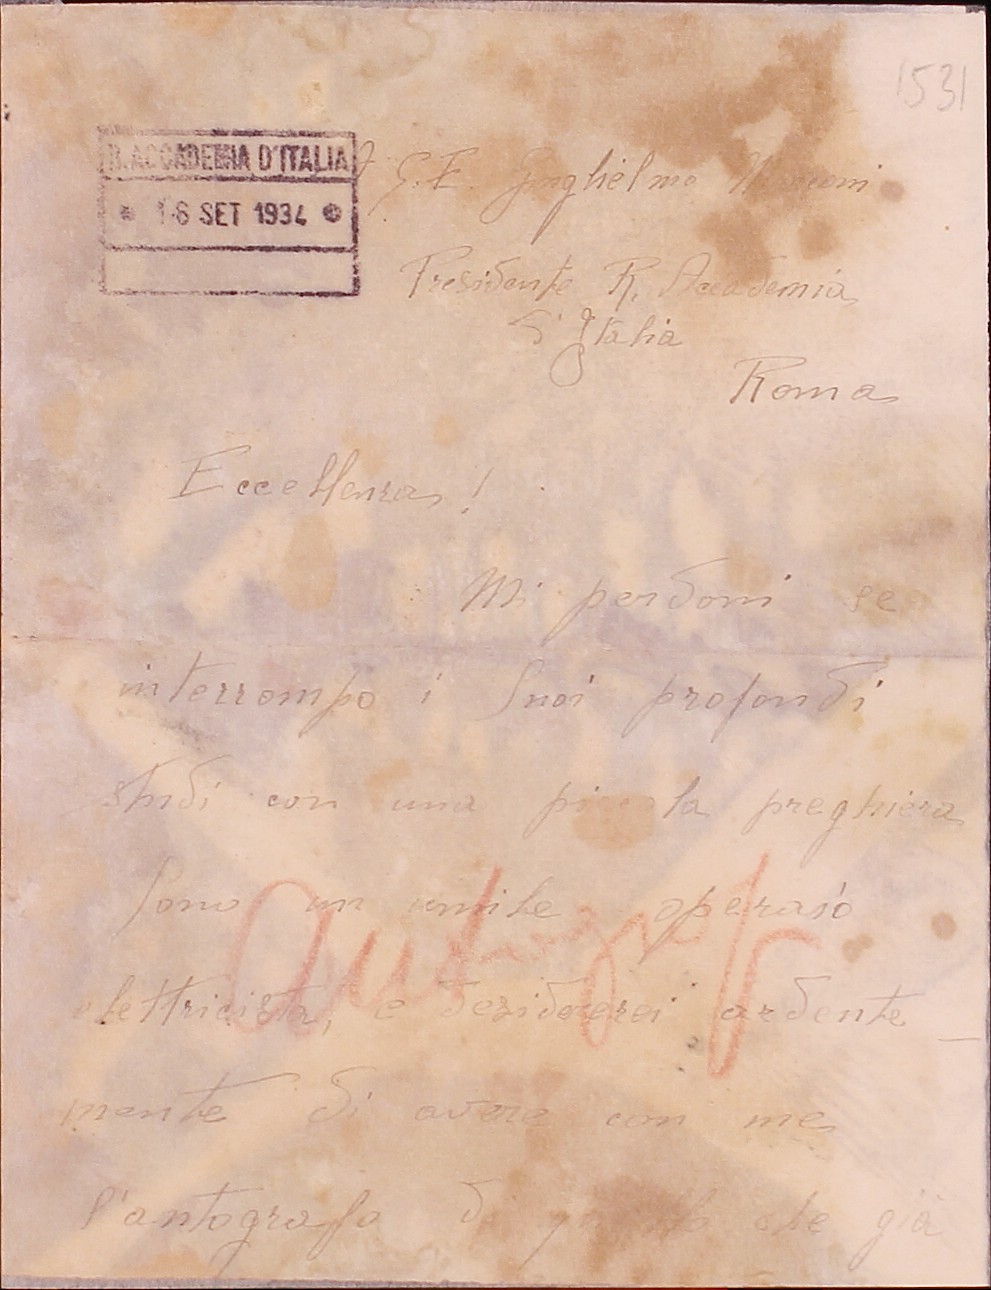 1531
R. ACCADEMIA D'ITALIA
16 SET 1934
A S.E. Guglielmo Marconi
Presidente R. Accademia
d'Italia
Roma
Eccellenza!
Mi perdoni se
interrompo i Suoi profondi
studi con una piccola preghiera
Sono un umile operaio
elettricista, e desidererei ardente
mente di avere con me
l'autografo di quello che già
Autografo